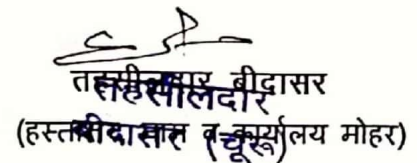 तहसीलदार बीदासर
तहसीलदार
(हस्ताक्षर व कार्यालय मोहर)
बीदासर (चूरू)